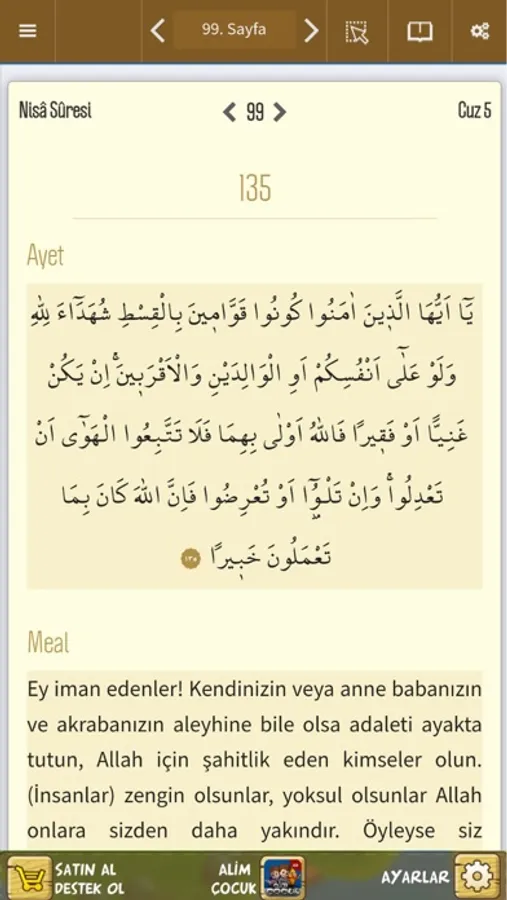 99. Sayfa
Nisâ Sûresi 99 Cuz 5
135
Ayet
يَٓا اَيُّهَا الَّذ۪ينَ اٰمَنُوا كُونُوا قَوَّام۪ينَ بِالْقِسْطِ شُهَدَٓاءَ لِلّٰهِ
وَلَوْ عَلٰٓى اَنْفُسِكُمْ اَوِ الْوَالِدَيْنِ وَالْاَقْرَب۪ينَۚ اِنْ يَكُنْ
غَنِيًّا اَوْ فَق۪يرًا فَاللّٰهُ اَوْلٰى بِهِمَا فَلَا تَتَّبِعُوا الْهَوٰٓى اَنْ
تَعْدِلُواۚ وَاِنْ تَلْوُ۫ٓا اَوْ تُعْرِضُوا فَاِنَّ اللّٰهَ كَانَ بِمَا
تَعْمَلُونَ خَب۪يرًا ١٣٥
Meal
Ey iman edenler! Kendinizin veya anne babanızın
ve akrabanızın aleyhine bile olsa adaleti ayakta
tutun, Allah için şahitlik eden kimseler olun.
(İnsanlar) zengin olsunlar, yoksul olsunlar Allah
onlara sizden daha yakındır. Öyleyse siz
SATIN AL
DESTEK OL
ALİM
ÇOCUK
AYARLAR